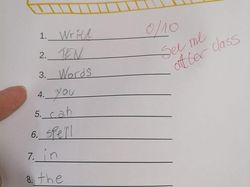 1. Write 0/10
2. TEN See me
3. Words after class
4. you
5. can
6. spell
7. in
8. the